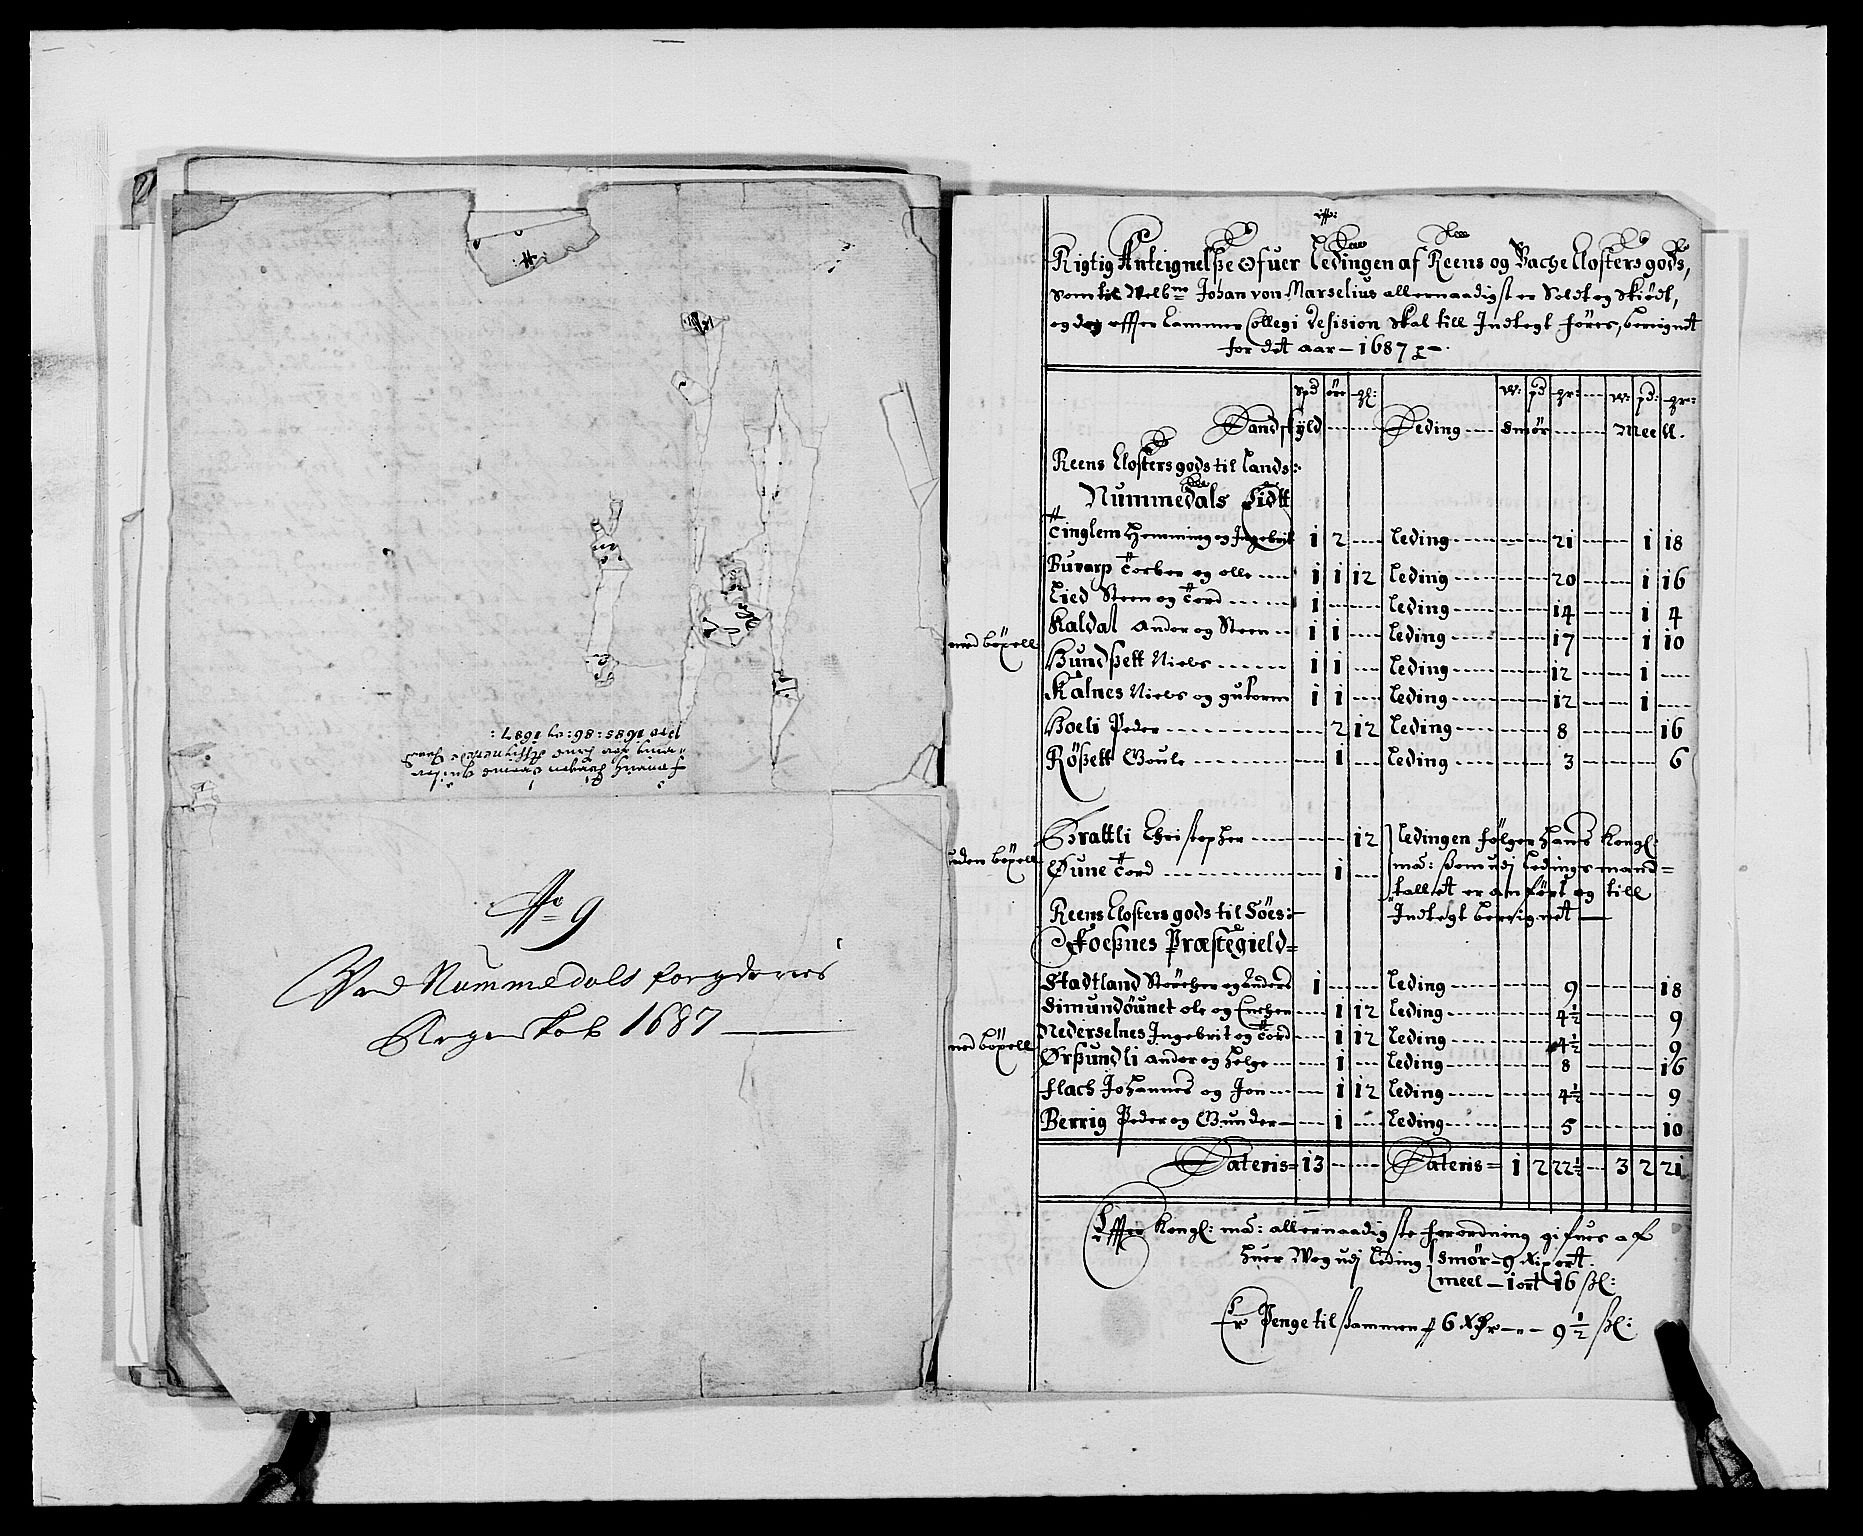 No 9
Ved Nummedals fougderies
Regenskab 1687
Rigtig Anteignelße Ofuer Ledingen af Reens og Bache Closters gods,
som til Welbne Johan von Marselius allernaadigst er Soldt og Skiödt,
og dog effter Cammer Collegi Desision Skal till Indtegt föres, bereignet
for det aar - 1687
Spd öre w: pd gr: w: pd: gr:
Landskyld Leding Smör Meell.
Reens Closters gods til Lands:
Nummedals Tidtt
Tinglem Hemming og Ingebrit 1 2 Leding 21 1 18
Buvarp Torber og olle 1 1 12 Leding 20 1 16
Lied Steen og Tord 1 Leding 14 1 4
Kaldal Ander og Steen 1 1 Leding 17 1 10
med böxell
Hundßett Niels 1 1 Leding 12 1
Kalnes Niels og gutorm 1 1 Leding 12 1
Hoeli Peder 2 12 Leding 8 16
Rößett Goule 1 Leding 3 6
Brattli Christopher 12 Ledingen fölger Hans Kongl:
uden böxell
Øune Tord 1 ma: ßom udj Ledings mand=
tallet er anfört og till
Reens Closters gods til Söes: Indtegt bereignet
Foeßnes Præstegield
Stadtland Störcher og Anders 1 Leding 9 18
Simundöunet ole og Enchen 1 12 Leding 4½ 9
Nederselnes Ingebrit og Tord 1 12 Leding 4½ 9
med böxell
Ørßundli Ander og Helge 1 Leding 8 16
Flach Johannes og Jon 1 12 Leding 4½ 9
Berrig Peder og Gunder 1 Leding 5 10
Lateris 13 Lateris 1 2 22½ 3 2 21
Effter Kongl: ma: allernaadigste forordning gifues af
huer Wog udj Leding Smör - 9 Rix ort.
meel - 1 ort 16 ßl:
Er Penge til sammen 6 Rdr 9 ½ ßl: